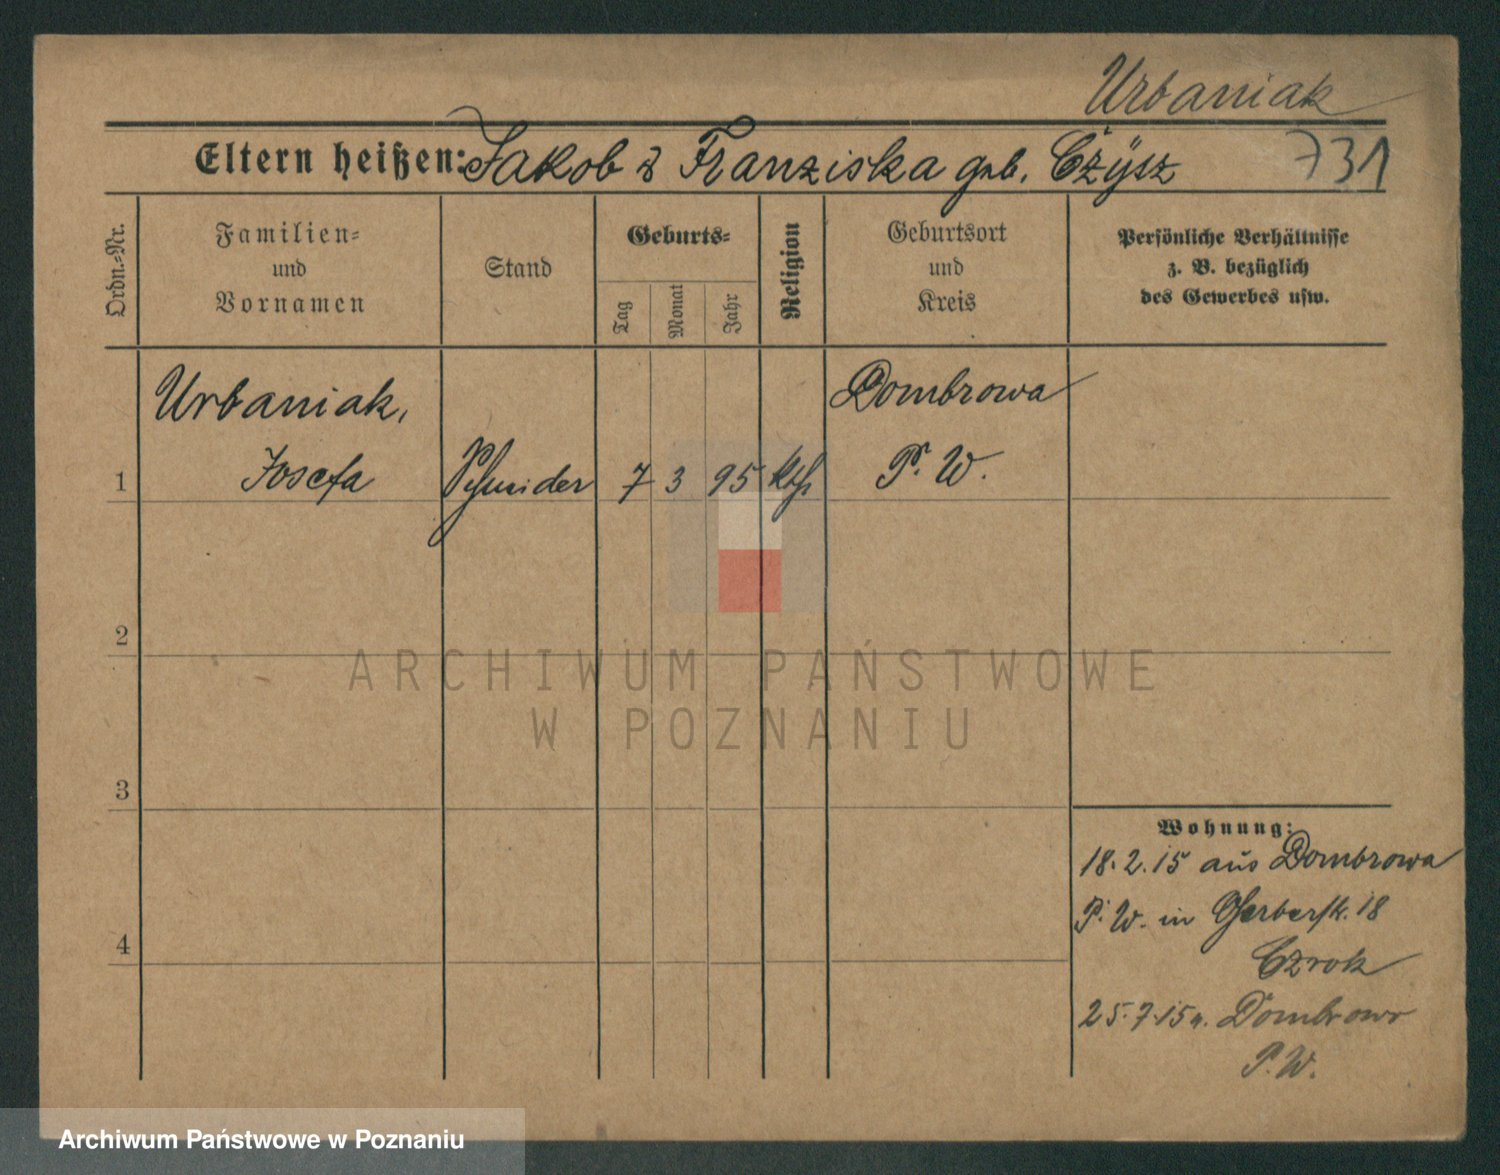 Urbaniak
Eltern heißen: Jakob & Franziska geb. Czÿsz
731
Ordn.-Nr.
Familien-
und
Vornamen
Stand
Geburts-
Tag
Monat
Jahr
Religion
Geburtsort
und
Kreis
Persönliche Verhältnisse
z. B. bezüglich
des Gewerbes usw.
1
Urbaniak,
Josefa
Schneider
7
3
95
kth
Dombrowa
P. W.
2
3
4
Wohnung:
18.2.15 aus Dombrowa
P. W. in Gerberstr. 18
Czrok
25.7.15 n. Dombrowo
P. W.
ARCHIWUM PAŃSTWOWE
W POZNANIU
Archiwum Państwowe w Poznaniu